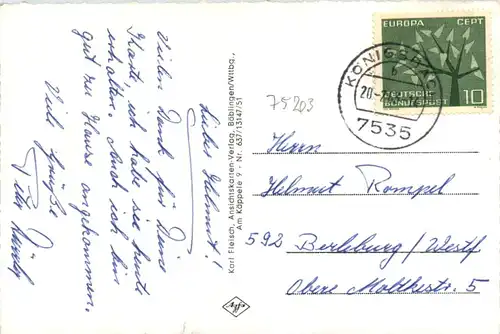 Lieber Helmut!
Vielen Dank für Deine
Karte, ich habe sie heute
erhalten. Auch ich bin
gut zu Hause angekommen.
Viele Grüße
Karl Fleisch, Ansichtskarten-Verlag, Böblingen/Wttbg.,
Am Käppele 9 - Nr. 637/13147/51
75203
EUROPA CEPT
DEUTSCHE
BUNDESPOST
10
7535
Herrn
Helmut Rompel
592 Berleburg/Westf.
Obere Molktestr. 5